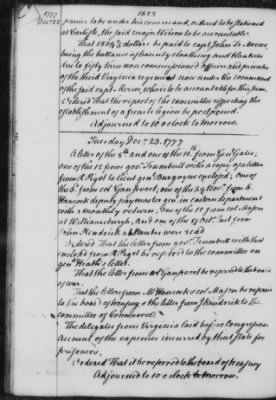 1777
Dec. 22
1808
panies to be under his command, ordered to be stationed
at Carlisle, the said major Wilson to be accountable.
That 1869 dollars be paid to capt. Jno. Mercer
being the balance of bounty cloathing and blankets
due to fifty nine non commissioned officers and privates
of the third Virginia regiment now under the command
of the said capt. Mercer, who is to be accountable for this sum.
Ordered That the report of the committee respecting the
establishment of a french legion be postponed.
Adjourned to 10 o'clock to morrow.
Tuesday Dec. 23, 1777
A letter of the and one of the 16th from Genl Gates,
one of the 12 from govr Trumbull with a copy of a letter
from R. Pigot to lieut genl Burgoyne enclosed; One of
the 3d from col Gansvort; one of the 29 novr from E.
Hancock deputy paymaster gen. in eastern department
with a monthly return, One of the 10 from col. Mason
at Williamsburgh, And one of the 17 Oct. last from
John Kendrick at Nantz were read
Ordered That the letter from govr Trumbull with that
enclosed from R. Pigot be referred to the committee on
genl Heath's letter.
That the letter from col Gansvort be referred to the board
of war.
That the letters from Mr Hancock & col. Mason be referred
to the board of treasury & the letter from J. Kendrick to the
committee of Commerce.
The delegates from Virginia laid before Congress an
account of the expences incurred by that State for
prisoners.
Ordered That it be referred to the board of treasury
Adjourned to 10 o'clock to morrow.